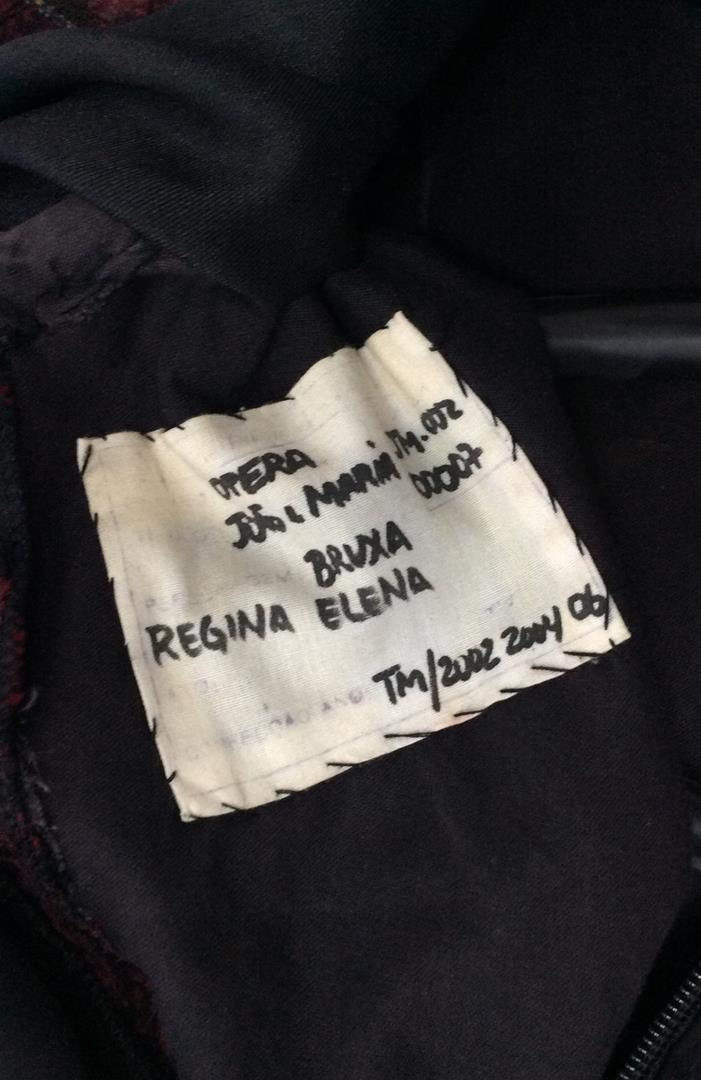 OPERA
JOÃO e MARIA JM.002
00007
BRUXA
REGINA ELENA
TM/2002 2004 06
CONFECÇÃO ANO